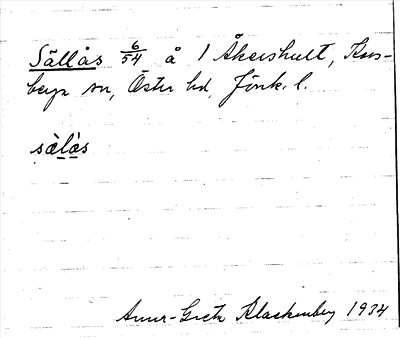 Sällås 6/54 å 1 Åkershult, Kors-
berga sn, Östra hd, Jönk. l.
sälås
Anna-Greta Blackenberg 1934